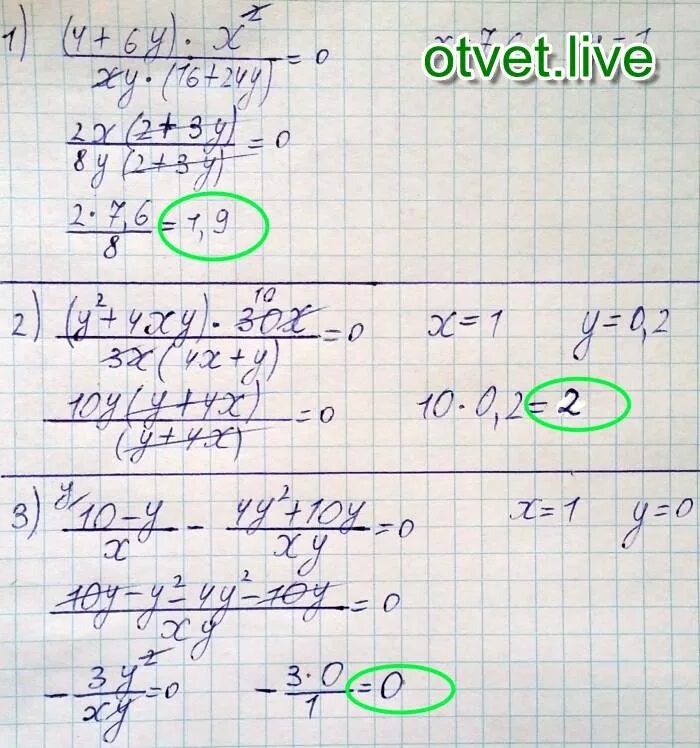 1) (4 + 6y) · x² / xy · (16 + 24y) = 0
otvet.live
2x (2 + 3y) / 8y (2 + 3y) = 0
2 · 7,6 / 8 = 1,9
2) (y² + 4xy) · 30x / 3x (4x + y) = 0 x = 1 y = 0,2
10
10y (y + 4x) / (y + 4x) = 0 10 · 0,2 = 2
3) y/ 10 - y / x - 4y² + 10y / xy = 0 x = 1 y = 0
10y - y² - 4y² - 10y / xy = 0
- 3y² / xy = 0 - 3 · 0 / 1 = 0